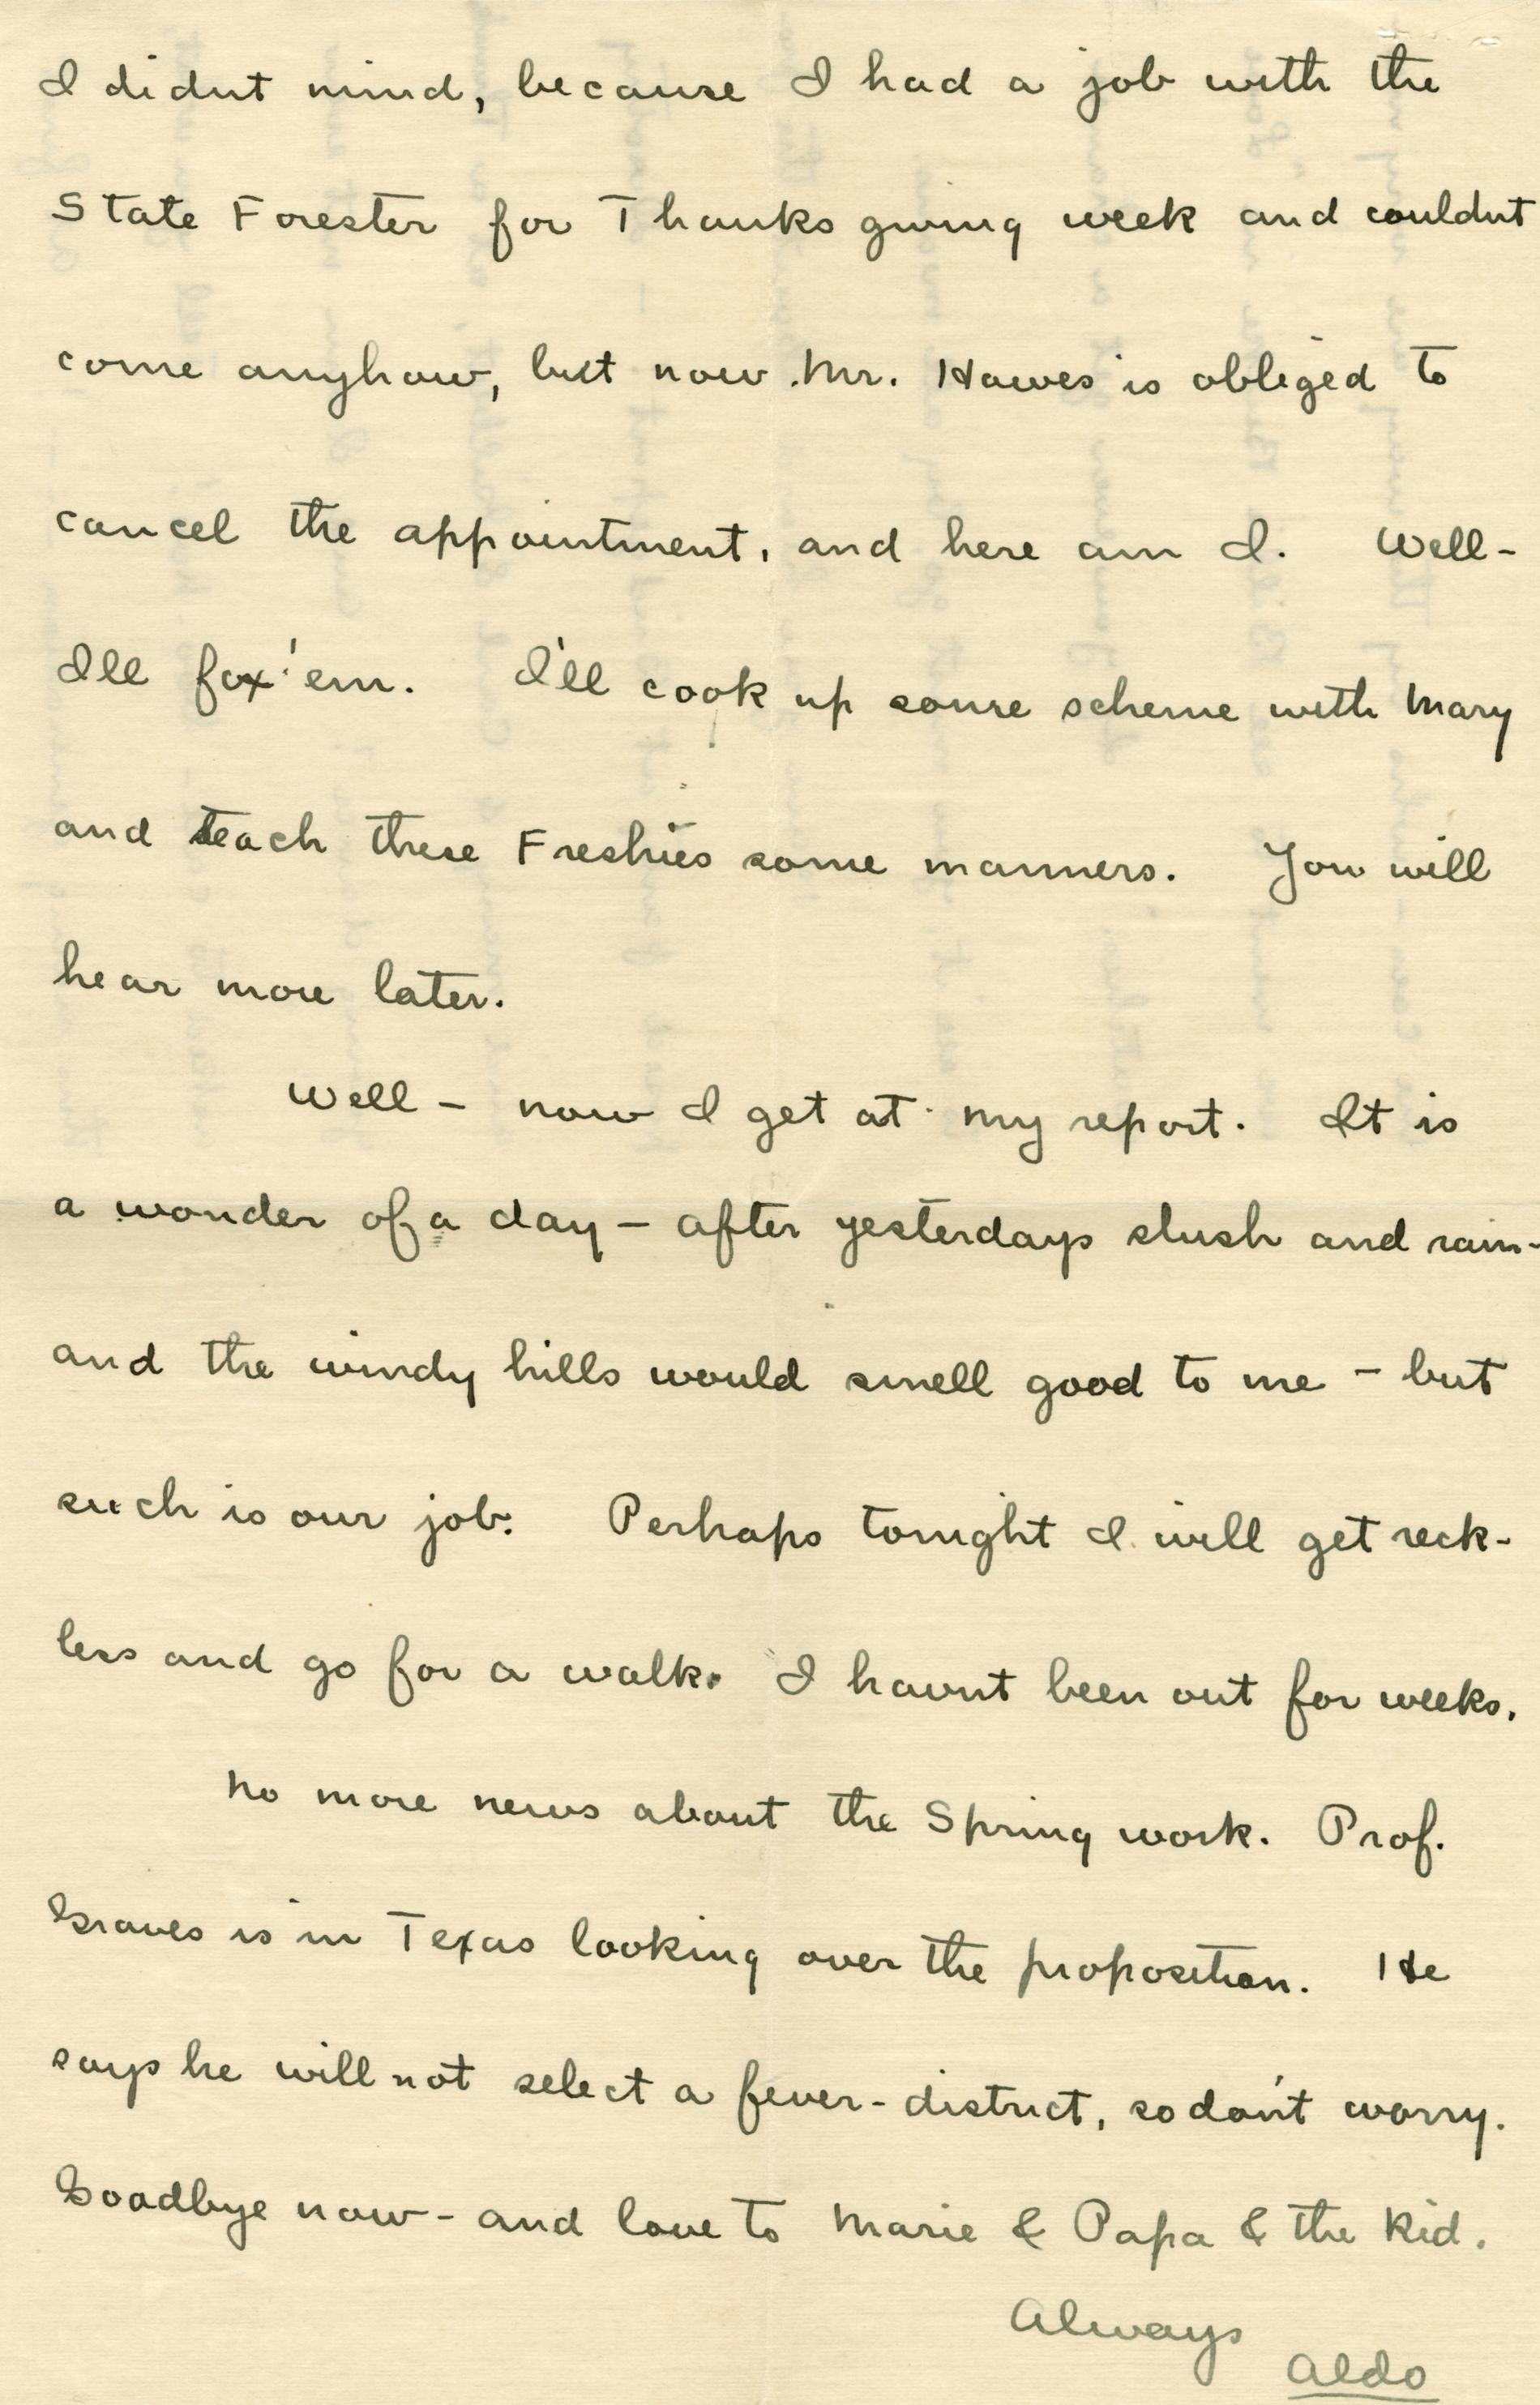 I didnt mind, because I had a job with the
State Forester for Thanksgiving week and couldnt
come anyhow, but now Mr. Hawes is obliged to
cancel the appointment, and here am I. Well-
Ill fox 'em. I'll cook up some scheme with Mary
and teach these Freshies some manners. You will
hear more later.
Well - now I get at my report. It is
a wonder of a day - after yesterdays slush and rain-
and the windy hills would smell good to me - but
such is our job. Perhaps tonight I will get reck-
less and go for a walk. I havnt been out for weeks.
No more news about the Spring work. Prof.
Graves is in Texas looking over the proposition. He
says he will not select a fever-district, so don't worry.
Goodbye now - and love to Marie & Papa & the Kid.
Always
Aldo